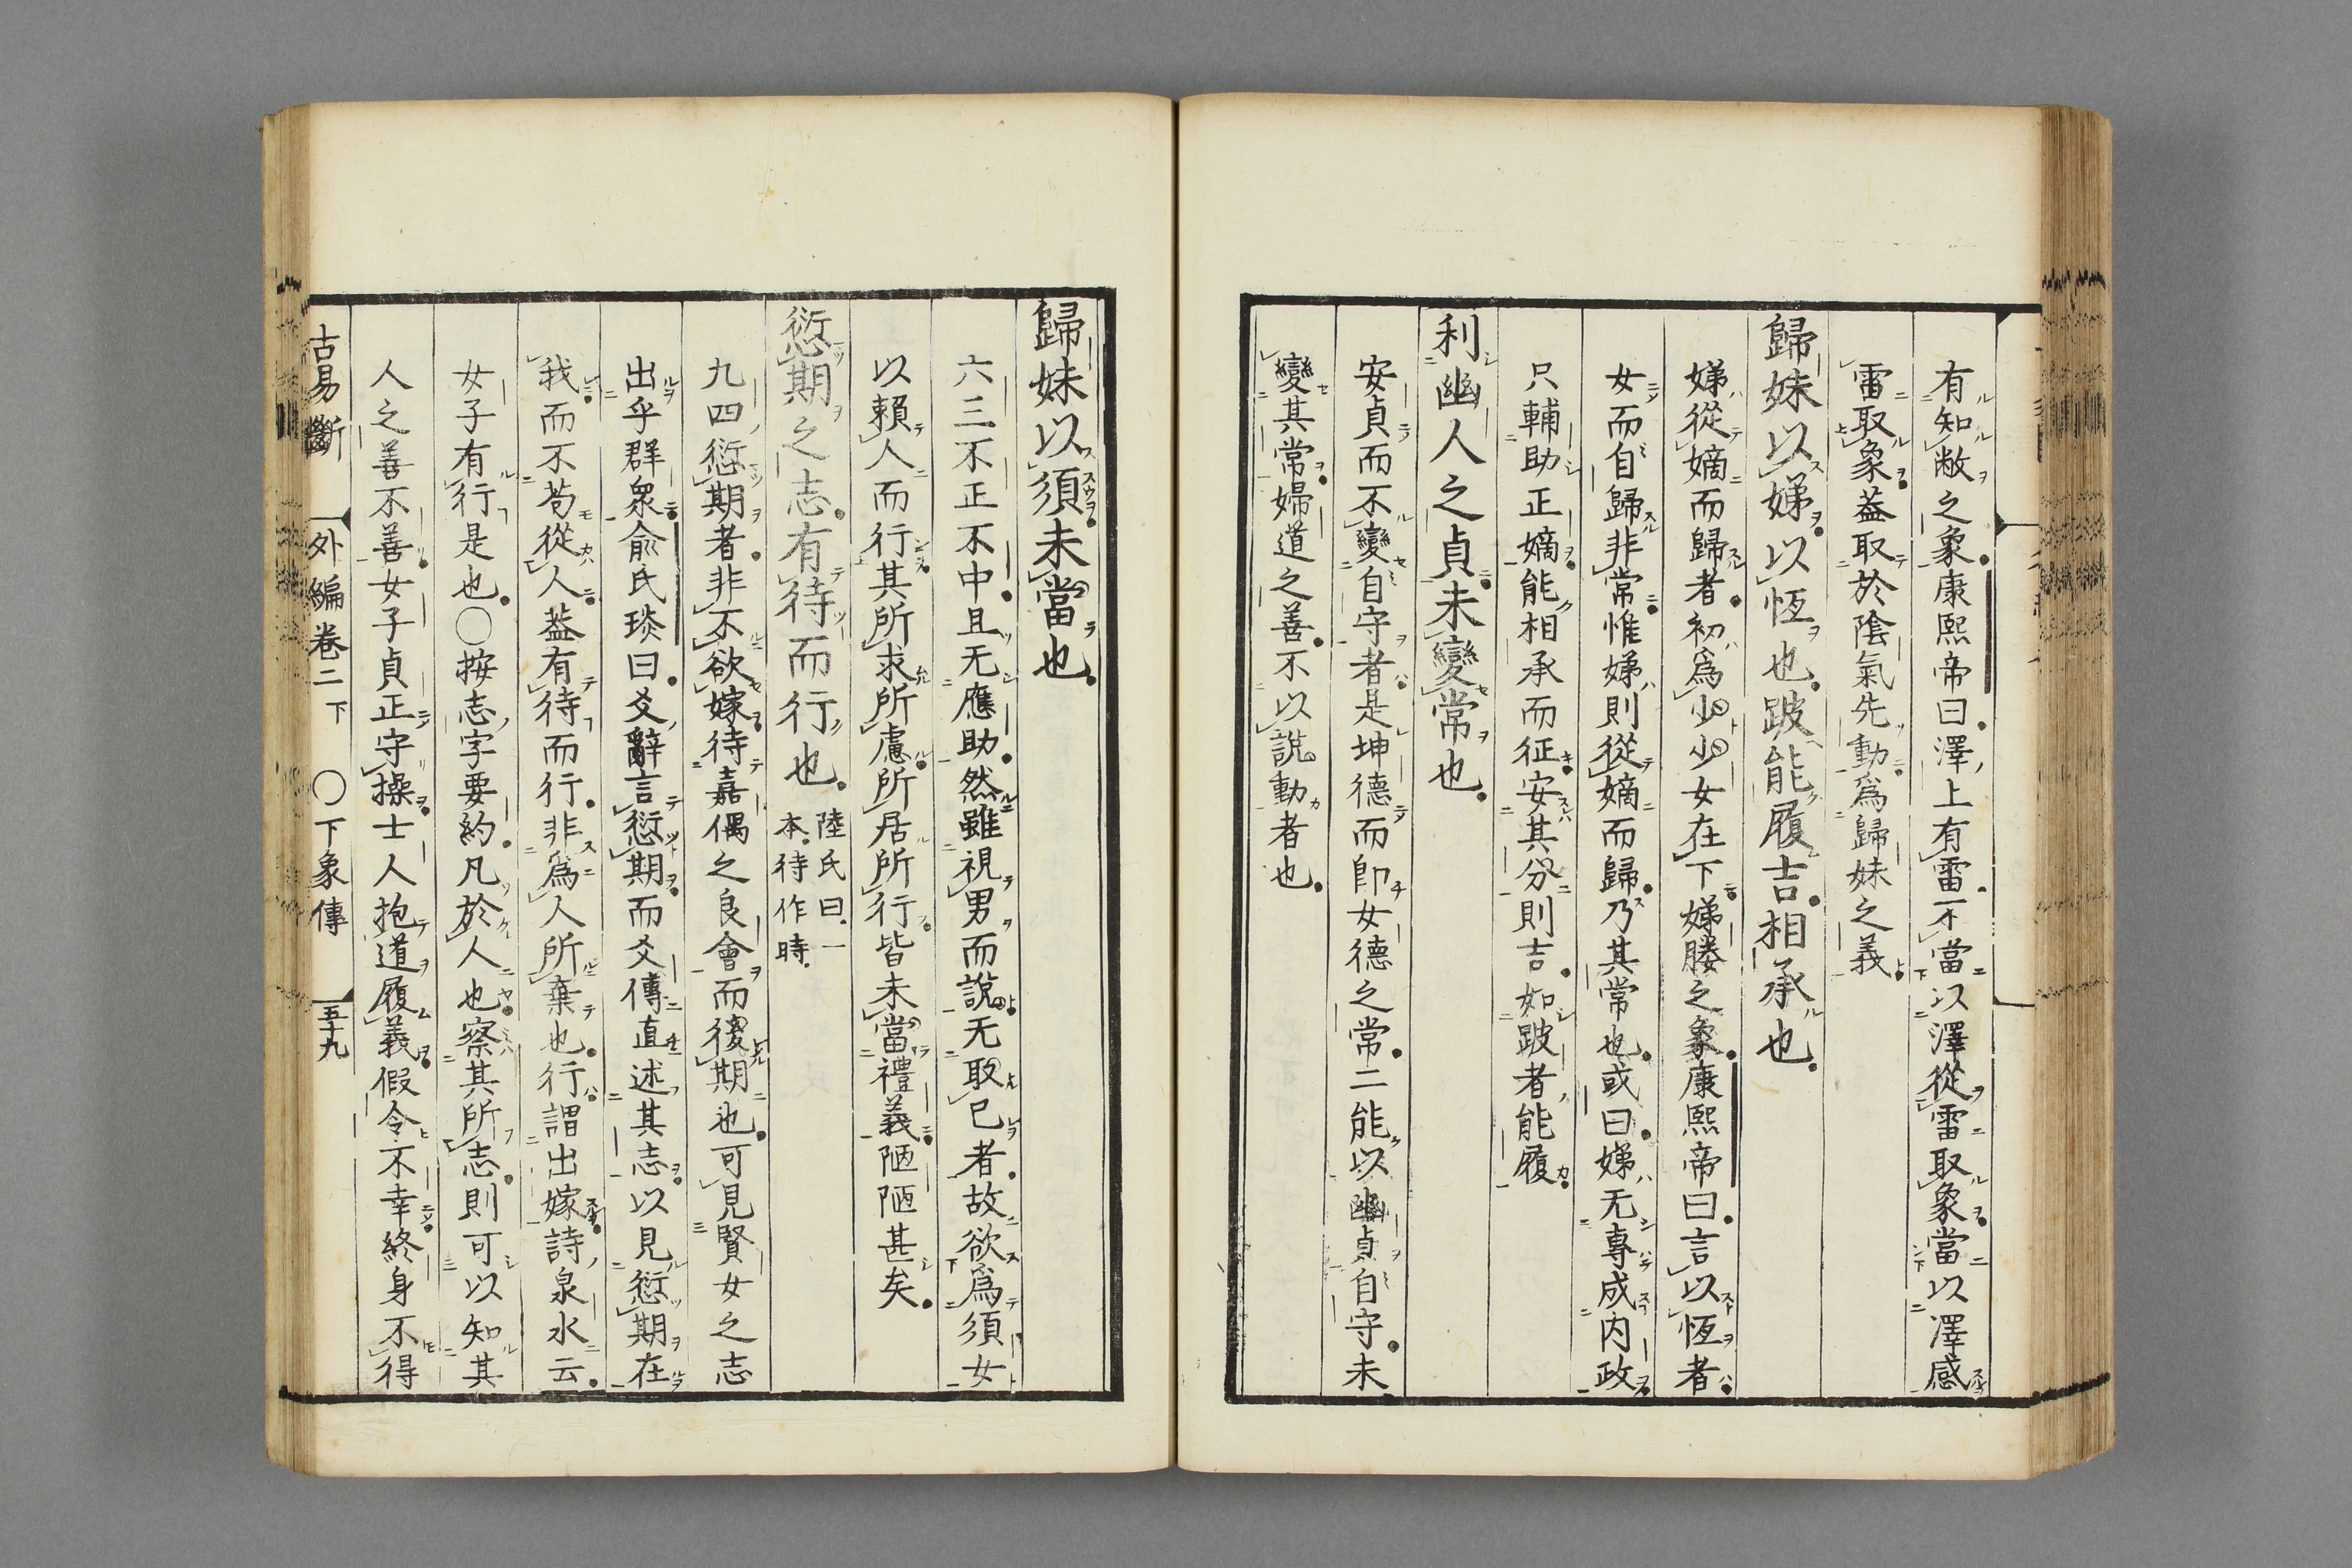 有知敝之象康熙帝曰澤上有雷不當以澤從雷取象當以澤感
雷取象葢取於陰氣先動爲歸妹之義
歸妹以娣以恆也跛能履吉相承也
娣從嫡而歸者初爲少少女在下娣媵之象康熙帝曰言以恆者
女而自歸非常惟娣則從嫡而歸乃其常也或曰娣无專成内政
只輔助正嫡能相承而征安其分則吉如跛者能履
利幽人之貞未變常也
安貞而不變自守者是坤德而卽女德之常二能以幽貞自守未
變其常婦道之善不以說動者也
歸妹以須未當也
六三不正不中且无應助然雖視男而說无取已者故欲爲須女
以賴人而行其所求所慮所居所行皆未當禮義陋陋甚矣
愆期之志有待而行也 陸氏曰一本待作時
九四愆期者非不欲嫁待嘉偶之良會而後期也可見賢女之志
出乎群衆俞氏琰曰爻辭言愆期而爻傳直述其志以見愆期在
我而不苟從人葢有待而行非爲人所棄也行謂出嫁詩泉水云
女子有行是也○按志字要約凡於人也察其所志則可以知其
人之善不善女子貞正守操士人抱道履義假令不幸終身不得
古易斷 外編卷二下 ○下象傳 五十九